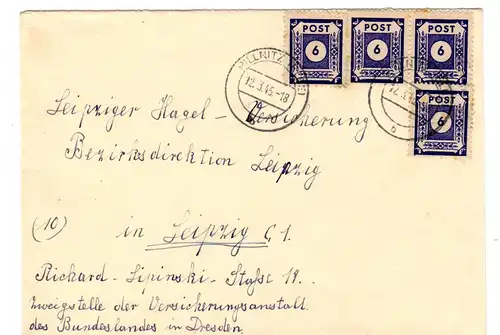 POST POST POST
6 6 6
POST
6
PILLNITZ
12.3.46.-18
b
Leipziger Hagel-Versicherung
Bezirksdirektion Leipzig
(10) in Leipzig C1.
Richard-Lipinski-Staße 18.
Zweigstelle der Versicherungsanstalt
des Bundeslandes in Dresden